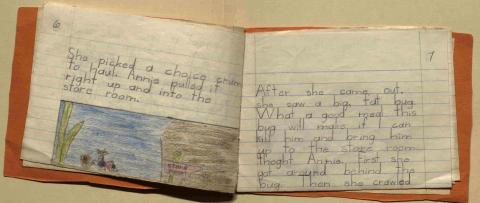 6
She picked a choice crum
to haul. Annie pulled it
right up and into the
store room.
7
After she came out,
she saw a big, fat bug.
What a good meal this
bug will make if I can
kill him and bring him
up to the store room
thoght Annie. First she
got around behind the
bug. Then she crawled